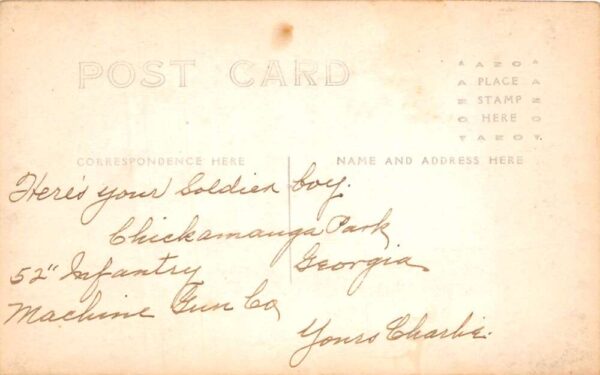 POST CARD
AZO
PLACE
STAMP
HERE
AZO
CORRESPONDENCE HERE
NAME AND ADDRESS HERE
Here's your Soldier boy.
Chickamauga Park
52" Infantry Georgia
Machine Gun Co
Yours Charlie.